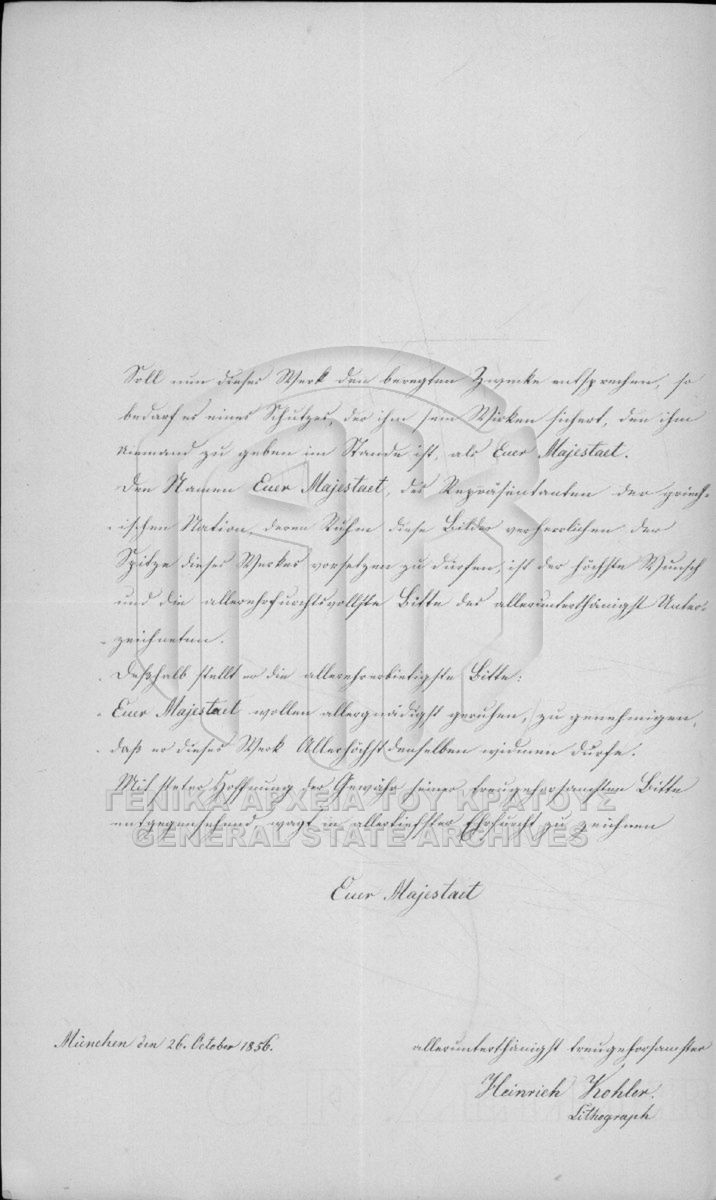 Soll nun dieses Werk den beregten Zwecke entsprechen, so
bedarf es eines Schutzes, der ihm sein Wirken sichert, den ihm
niemand zu geben im Stande ist, als Euer Majestaet.
Den Namen Euer Majestaet, des Repräsentanten der griech-
ischen Nation, deren Ruhm diese Bilder verherrlichen der
Spitze dieses Werkes vorsetzen zu dürfen, ist der höchste Wunsch
und die allerehrfurchtsvollste Bitte des allerunterthänigst Unter-
zeichneten.
Deßhalb stellt er die allerehrerbietigste Bitte:
Euer Majestaet wollen allergnädigst geruhen, zu genehmigen,
daß er dieses Werk Allerhöchstdenselben widmen dürfe.
Mit steter Hoffnung der Gewähr seiner treugehorsamsten Bitte
entgegensehend, wagt in allertiefster Ehrfurcht zu zeichnen
ΓΕΝΙΚΑ ΑΡΧΕΙΑ ΤΟΥ ΚΡΑΤΟΥΣ
GENERAL STATE ARCHIVES
Euer Majestaet
München den 26. October 1856.
allerunterthänigst treugehorsamster
Heinrich Kohler.
Lithograph